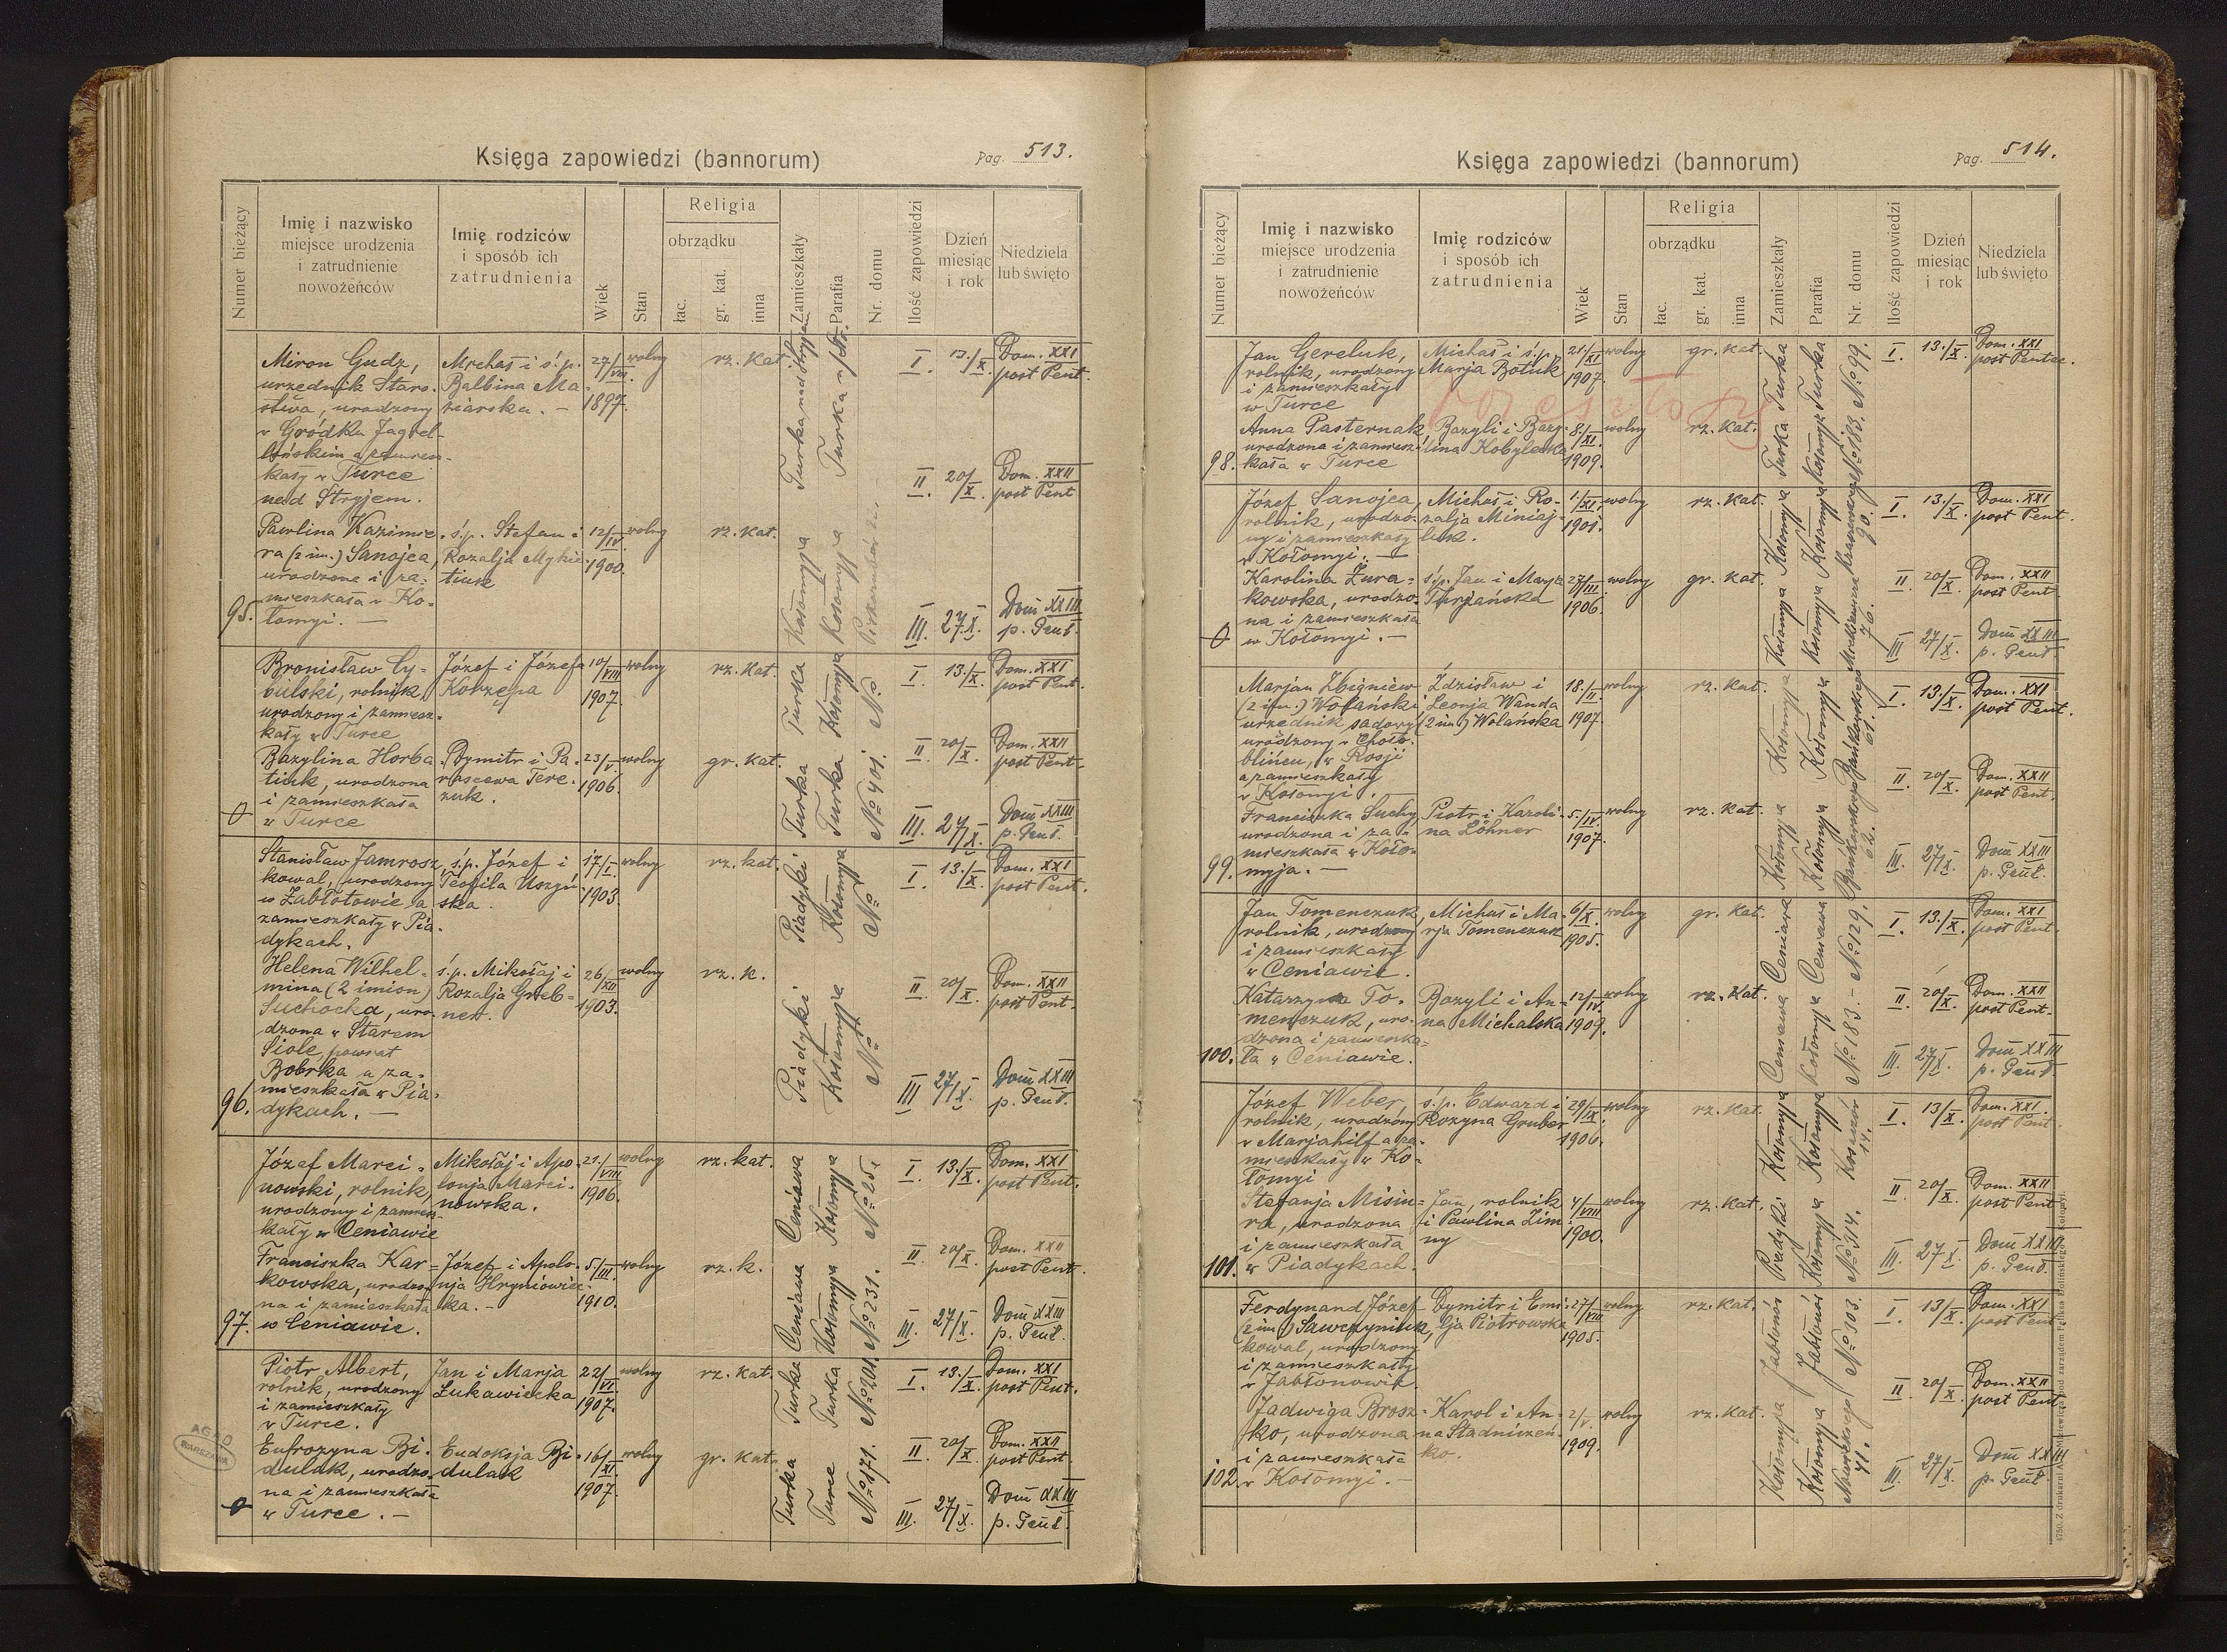 Księga zapowiedzi (bannorum)
Pag. 513.
Numer bieżący
Imię i nazwisko
miejsce urodzenia
i zatrudnienie
nowożeńców
Imię rodziców
i sposób ich
zatrudnienia
Wiek
Stan
Religia
obrządku
łac.
gr. kat.
inna
Zamieszkały
Parafia
Nr. domu
Ilość zapowiedzi
Dzień
miesiąc
i rok
Niedziela
lub święto
Miron Gudz, Michał i ś.p. 27/VIII. wolny rz. kat. Turka nad Stryjem I. 13./X. Dom. XXI
urzędnik Staro- Balbina Ma- 1897. post Pent.
stwa, urodzony ziarska. –
w Gródku Jagiel-
lońskim a zamiesz-
kały w Turce II. 20/X. Dom. XXII
nad Stryjem. post Pent
Pawlina Kazimie- ś.p. Stefan i 12/IV. wolny rz. kat. Kołomyja Kołomyja
ra (2 im.) Sanojca, Rozalja Mykie- 1900.
urodzona i za- tiuk
mieszkała w Ko- III. 27.X. Dom XXIII
95. łomyi. — p. Pent.
Bronisław Cy- Józef i Józefa 10/VIII wolny rz. kat. Turka Kołomyja No I. 13./X. Dom. XXI
bulski, rolnik, Korzępa 1907. post Pent.
urodzony i zamiesz-
kały w Turce
Bazylina Horba- Dymitr i Pa- 23/V. wolny gr. kat. Turka Turka No 401. II. 20/X. Dom. XXII
tiuk, urodzona rascewa Tere- 1906. post Pent.
i zamieszkała zuk.
0 w Turce III. 27/X. Dom XXIII
p. Pent.
Stanisław Jamrosz, ś.p. Józef i 17/I. wolny rz. kat. Piadyki Kołomyja No I. 13./X. Dom. XXI
kowal, urodzony Teofila Uszyń- 1903. post Pent.
w Zabłotowie a ska.
zamieszkały w Pia-
dykach.
Helena Wilhel- ś.p. Mikołaj i 26/XII wolny rz. k. Piadyki Kołomyja No II. 20/X. Dom. XXII
mina (2 imion) Rozalja Greb- 1903. post Pent.
Suchocka, uro- ner.
dzona w Starem
Siole, powiat
Bobrka a za- III 27/X. Dom XXIII
mieszkała w Pia- p. Pent.
96. dykach. —
Józef Marci- Mikołaj i Apo- 21./VIII wolny rz. kat. Ceniawa Kołomyja No 25. I. 13./X. Dom. XXI
nowski, rolnik, lonja Marci- 1906. post Pent.
urodzony i zamiesz- nowska.
kały w Ceniawie
Franciszka Kar- Józef i Apolo- 5./III. wolny rz. k. Ceniawa Kołomyja No 231. II. 20/X. Dom. XXII
kowska, urodzo- nja Hryniowiec- 1910. post Pent.
na i zamieszkała ka. –
97. w Ceniawie. III. 27/X. Dom XXIII
p. Pent.
Piotr Albert, Jan i Marja 22/VI. wolny rz. kat. Turka Turka No 201. I. 13./X. Dom. XXI
rolnik, urodzony Łukawiecka 1907. post Pent.
i zamieszkały
w Turce.
Eufrozyna Bi- Eudoksja Bi- 16/XI. wolny gr. kat. Turka Turce No 171. II. 20/X. Dom. XXII
dulak, urodzo- dulak 1907. post Pent.
na i zamieszkała
0 w Turce. – III. 27/X. Dom XXIII
p. Pent.
AGAD
WARSZAWA
Księga zapowiedzi (bannorum)
Pag. 514.
Numer bieżący
Imię i nazwisko
miejsce urodzenia
i zatrudnienie
nowożeńców
Imię rodziców
i sposób ich
zatrudnienia
Wiek
Stan
Religia
obrządku
łac.
gr. kat.
inna
Zamieszkały
Parafia
Nr. domu
Ilość zapowiedzi
Dzień
miesiąc
i rok
Niedziela
lub święto
Jan Gereluk, Michał i ś.p. 21./XI wolny gr. kat. Turka Turka No 99. I. 13./X. Dom. XXI
rolnik, urodzony Marja Botuk 1907. post Pentec.
i zamieszkały
w Turce
Anna Pasternak, Bazyli i Bazy- 8./XI. wolny rz. kat. Turka Turka No 183.
urodzona i zamiesz- lina Kobylecka 1909.
98. kała w Turce
Józef Sanojca, Michał i Ro- 1./XI. wolny rz. kat. Kołomyja Kołomyja 90. I. 13./X. Dom. XXI
rolnik, urodzo- zalja Miniaj- 1901. post Pent.
ny i zamieszkały luk.
w Kołomyi. —
Karolina Żura- ś.p. Jan i Marja 27/III. wolny gr. kat. Kołomyja Kołomyja 76. II 20/X. Dom. XXII
kowska, urodzo- Turjańska 1906. post Pent
na i zamieszkała
0 w Kołomyi. – III 27/X. Dom XXIII
p. Pent.
Marjan Zbigniew Zdzisław i 18./II. wolny rz. kat. Kołomyja Kołomyja 61. I. 13./X. Dom. XXI
(2 im.) Wolański Leonja Wanda 1907. post Pent.
urzędnik sądowy (2 im.) Wolańska
urodzony w
w Rosji
a zamieszkały II 20/X. Dom. XXII
w Kołomyi. post Pent.
Franciszka Suchy, Piotr i Karoli- 5./IV. wolny rz. kat. Kołomyja Kołomyja 62.
urodzona i za- na Löhner 1907.
mieszkała w Koło- III. 27/X. Dom XXIII
99. myja. — p. Pent.
Jan Tomenczuk, Michał i Ma- 6/X. wolny gr. kat. Ceniawa Ceniawa No 129. I. 13./X. Dom. XXI
rolnik, urodzony rja Tomenczuk 1905. post Pent.
i zamieszkały
w Ceniawie.
Katarzyna To- Bazyli i An- 12/IV. wolny rz. kat. Ceniawa Kołomyja No 183. – II. 20/X. Dom. XXII
menczuk, uro- na Michalska 1909. post Pent.
dzona i zamieszka-
100. ła w Ceniawie. III. 27/X. Dom XXIII
p. Pent.
Józef Weber, ś.p. Edward i 29/IX. wolny rz. kat. Kołomyja Kołomyja 14. I. 13/X. Dom. XXI.
rolnik, urodzony Rozyna Gruber 1906. post Pent.
w Marjahilf a za-
mieszkały w Ko-
łomyi II 20/X. Dom. XXII
Stefanja Misiu- Jan, rolnik 4/VIII wolny rz. kat. Piadyki Kołomyja No 914. post Pent
ra, urodzona i Pawlina Zim- 1900.
i zamieszkała ny III. 27 X. Dom XXIII
101. w Piadykach. p. Pent.
Ferdynand Józef Dymitr i Emi- 27/VIII wolny rz. kat. Jabłonów Jabłonów No 303. I. 13/X. Dom. XXI
(2 im.) Sawczyniuk, lja Piotrowska 1905. post Pent
kowal, urodzony
i zamieszkały
w Jabłonowie. II 20/X. Dom. XXII
Jadwiga Brosz- Karol i An- 2/V. wolny rz. kat. Kołomyja Kołomyja 41. post Pent
ko, urodzona na Stadniczeń- 1909.
i zamieszkała ko. III. 27/X. Dom XXIII
102. w Kołomyi. – p. Pent.